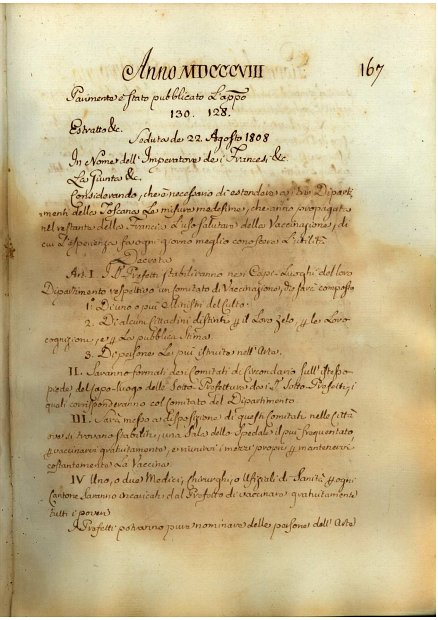 Anno MDCCCVIII
167
Parimente è stato pubblicato L'app.o
130. 128.
Estratto &c.
Seduta de 22. Agosto 1808
In Nome dell'Imperatore de i Francesi &c.
La Giunta &c.
Considerando, che è necessario di estendere ai tre Dipart-
menti della Toscana Le misure medesime, che anno propagato
nel restante della Francia L'uso salutare della Vaccinazione, di
cui L'esperienza fa ogni giorno meglio conoscere L'utilità
Decreta
Art. I. I SS.i Prefetti stabiliranno nei Capi-Luoghi del loro
Dipartimento respettivo un Comitato di Vaccinazione, che sarà composto
1.o Di uno o più Ministri del Culto:
2. Di alcuni Cittadini distinti p il Loro zelo, p le Loro
cognizioni, e p La pubblica Stima.
3. Di persone Le più istruite nell'Arte.
II. Saranno formati dei Comitati di Circondario sull'istesso
piede del Capo-Luogo delle Sotto Prefetture dei SS.i Sotto Prefetti, i
quali corrisponderanno col Comitato del Dipartimento.
III. Sarà messo a disposizione di questi Comitati nelle Città
ove si trovano stabiliti, una Sala dello Spedale il più frequentato
p vaccinarvi gratuitamente, e riunirvi i mezzi proprj p mantenervi
costantemente La Vaccina.
IV Uno, o due Medici, Chirurghi, o Ufiziali di Sanità p ogni
Cantone Saranno incaricati dal Prefetto di vaccinare gratuitamente
tutti i poveri
I Prefetti potranno pure nominare delle persone dell'Arte